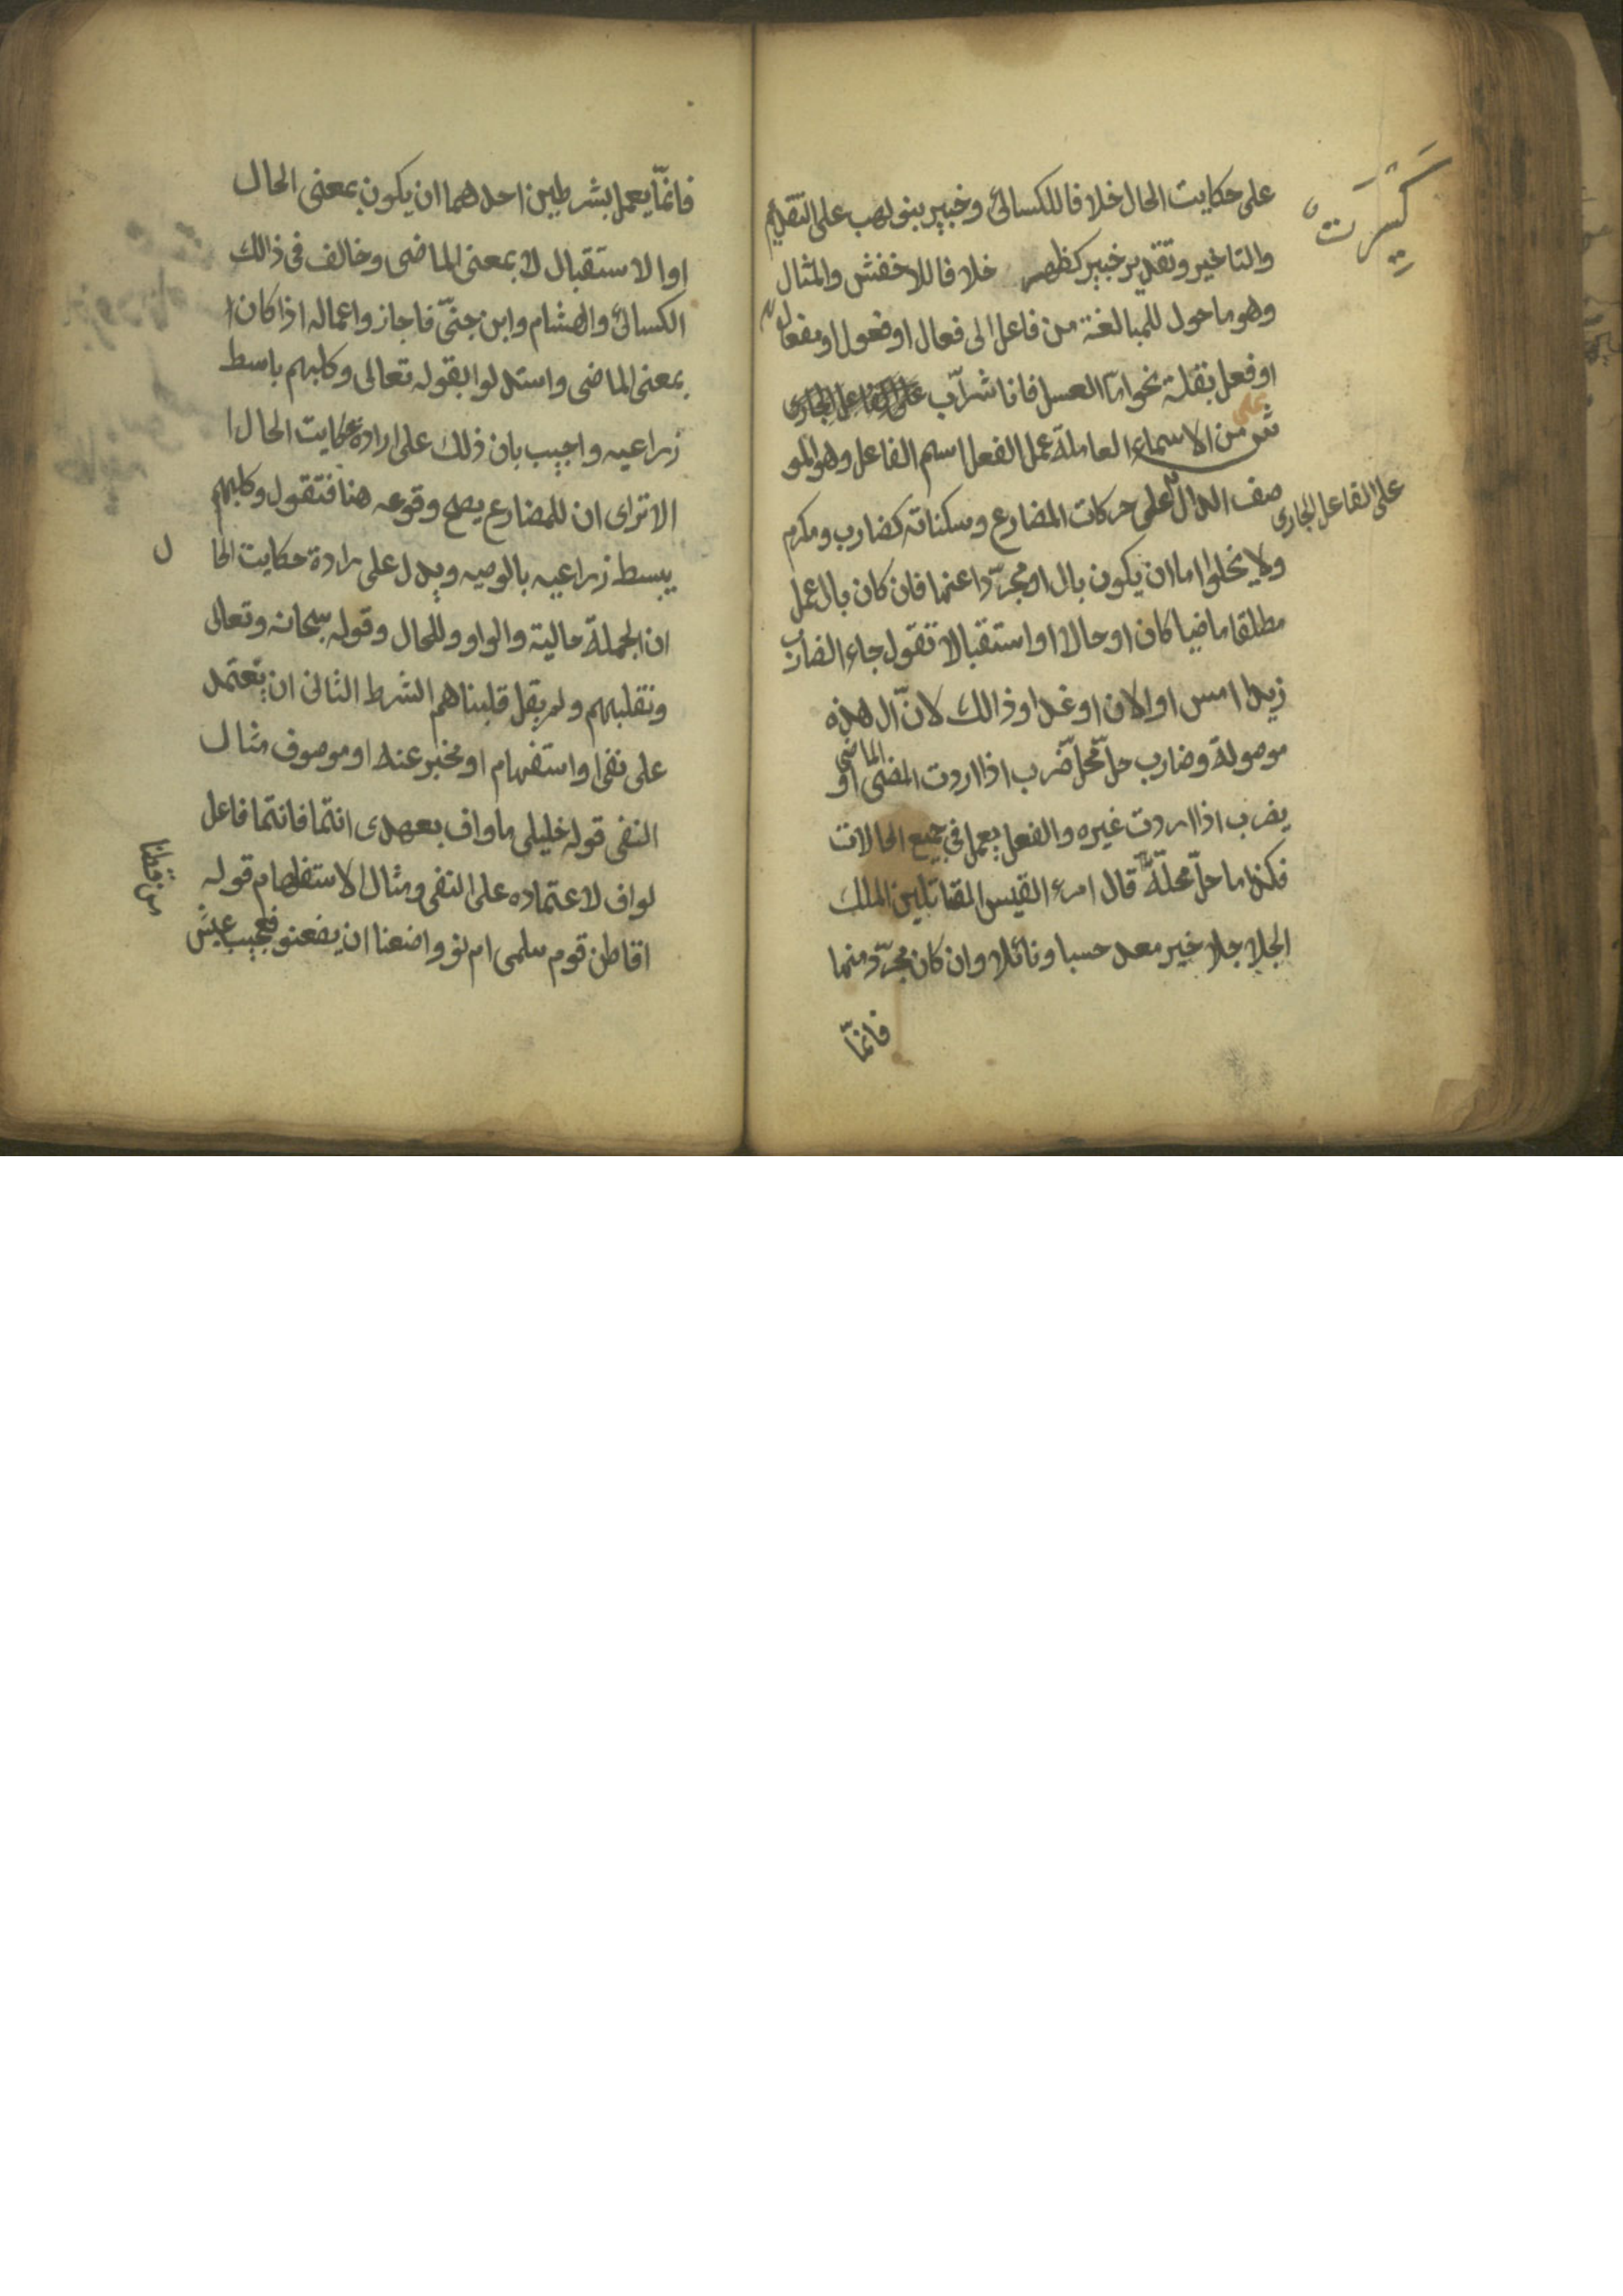 على حكايت الحال خلافا للكسائ وخبير بنو لهب على التقديم
والتاخير وتقدير خبير كظهير خلافا للاخفش والمثال
وهو ما حول للمبالغة من فاعل الى فعال او فعول او مفعال
او فعل بقلة نحو امّا العسل فانا شرّاب على الفاعل الجارى
ش من الاسماء العاملة عمل الفعل اسم الفاعل وهو المو
صف الدال على حركات المضارع وسكناته كضارب ومكرم
على الفاعل الجارى
ولا يخلوا اما ان يكون بال او مجرّدا عنها فان كان بال عمل
مطلقا ماضيا كان او حالا او استقبالا تقول جاء الضارب
زيدا امس او الان او غدا وذالك لانّ ال هذه
موصولة وضارب حلّ محلّ ضرب اذا اردت المضى او
الماضى
يضرب اذا اردت غيره والفعل يعمل في جميع الحالات
فكذا ما حلّ محلّه قال امرء القيس المقاتلين الملك
الجلا جلا خير معد حسبا ونائلا وان كان مجرّد منها
فانمّا
فانمّا يعمل بشرطين احدهما ان يكون بمعنى الحال
او الاستقبال لا بمعنى الماضى وخالف فى ذالك
الكسائ والهشام وابن جنىّ فاجاز واعماله اذا كان ا
بمعنى الماضى واستدلوا بقوله تعالى وكلبهم باسط
ذراعيه واجيب بان ذلك على ارادة حكايت الحال ا
الاترى ان للمضارع يصح وقوعه هنا فتقول وكلبهم
يبسط ذراعيه بالوصيه ويدل على رادة حكايت الحا
ل
ان الجملة حالية والواو وللحال وقوله سبحانه وتعالى
ونقلبهم ولم يقل قلبناهم الشرط الثانى ان يعتمد
على نفى او استفهام او مخبر عنه او موصوف مثال
النفى قوله خليلى ما واف بعهدى انتما فانتما فاعل
لواف لاعتماده على النفى ومثال الاستفهام قوله
اقاطن قوم سلمى ام نووا ضعنا ان يضعنو فعجيب عيش
من قطنا